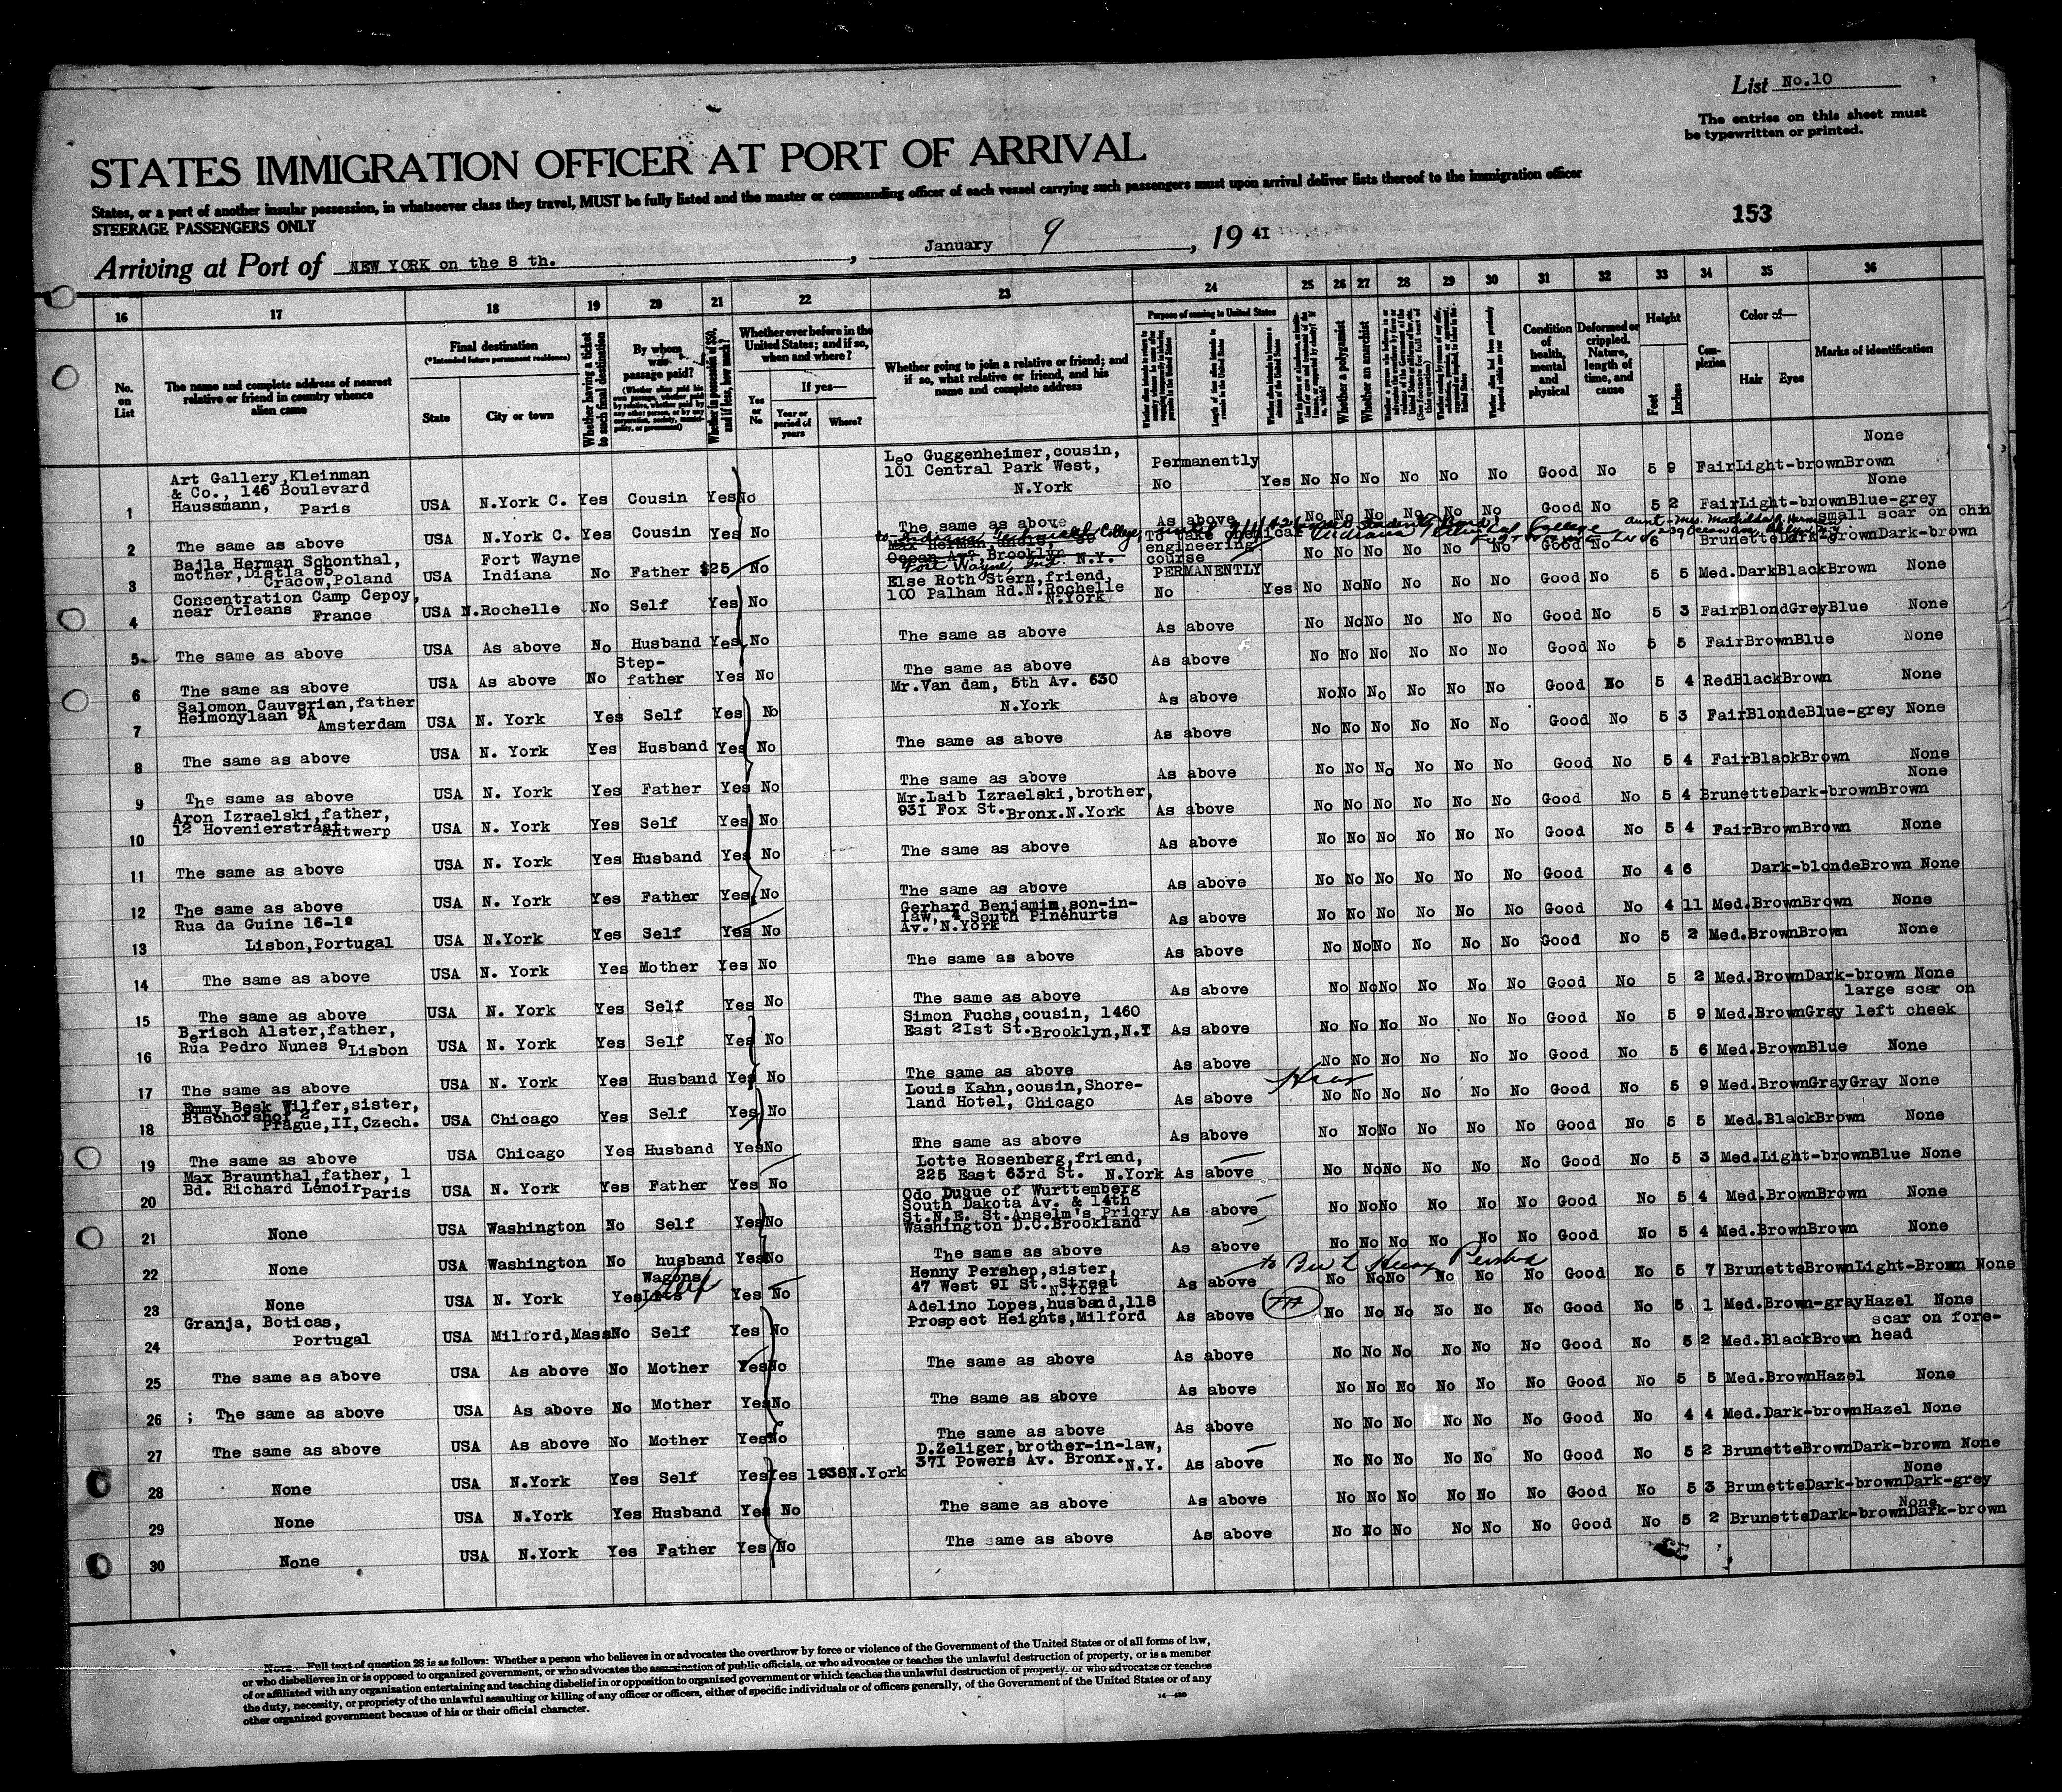 List No.10
The entries on this sheet must
be typewritten or printed.
STATES IMMIGRATION OFFICER AT PORT OF ARRIVAL
States, or a port of another insular possession, in whatsoever class they travel, MUST be fully listed and the master or commanding officer of each vessel carrying such passengers must upon arrival deliver lists thereof to the immigration officer
STEERAGE PASSENGERS ONLY
153
Arriving at Port of NEW YORK on the 8 th. , January 9 , 19 41
16 17 18 19 20 21 22 23 24 25 26 27 28 29 30 31 32 33 34 35 36
No. on List
The name and complete address of nearest relative or friend in country whence alien came
Final destination
(*Intended future permanent residence)
State City or town
Whether having a ticket to such final destination
By whom was passage paid?
Whether in possession of $50, and if less, how much?
Whether ever before in the United States; and if so, when and where?
Yes or No
If yes—
Year or period of years
Where?
Whether going to join a relative or friend; and if so, what relative or friend, and his name and complete address
Purpose of coming to United States
Whether a polygamist
Whether an anarchist
Condition of health, mental and physical
Deformed or crippled. Nature, length of time, and cause
Height
Feet Inches
Complexion
Color of—
Hair Eyes
Marks of identification
1 Art Gallery,Kleinman & Co., 146 Boulevard Haussmann, Paris USA N.York C. Yes Cousin Yes No Leo Guggenheimer,cousin, 101 Central Park West, N.York Permanently No Yes No No No No No No Good No 5 9 Fair Light-brown Brown None
2 The same as above USA N.York C. Yes Cousin Yes No The same as above As above No No No No No No Good No 5 2 Fair Light-brown Blue-grey None
3 Bajla Herman Schonthal, mother,Dietla 85 Cracow,Poland USA Fort Wayne Indiana No Father $25 No to Indiana Technical College, Fort Wayne, Ind. N.Y. To take chemical engineering course No No No No No No Good No 6 Brunette Dark-brown Dark-brown small scar on chin
4 Concentration Camp Cepoy, near Orleans France USA N.Rochelle No Self Yes No Else Roth Stern,friend, 100 Palham Rd.N.Rochelle N.York PERMANENTLY No Yes No No No No No No Good No 5 5 Med.Dark Black Brown None
5 The same as above USA As above No Husband Yes No The same as above As above No No No No No No Good No 5 3 Fair Blond Grey Blue None
6 The same as above USA As above No Step-father Yes No The same as above As above No No No No No No Good No 5 5 Fair Brown Blue None
7 Salomon Cauverien,father Heimonylaan 9A Amsterdam USA N. York Yes Self Yes No Mr.Van dam, 5th Av. 630 N.York As above No No No No No No Good No 5 4 Red Black Brown None
8 The same as above USA N. York Yes Husband Yes No The same as above As above No No No No No No Good No 5 3 Fair Blonde Blue-grey None
9 The same as above USA N. York Yes Father Yes No The same as above As above No No No No No No Good No 5 4 Fair Black Brown None
10 Aron Izraelski,father, 12 Hovenierstraat Antwerp USA N. York Yes Self Yes No Mr.Laib Izraelski,brother, 931 Fox St.Bronx.N.York As above No No No No No No Good No 5 4 Brunette Dark-brown Brown None
11 The same as above USA N. York Yes Husband Yes No The same as above As above No No No No No No Good No 5 4 Fair Brown Brown None
12 The same as above USA N. York Yes Father Yes No The same as above As above No No No No No No Good No 4 6 Dark-blonde Brown None
13 Rua da Guine 16-1º Lisbon,Portugal USA N.York Yes Self Yes No Gerhard Benjamin,son-in-law, 4 South Pinehurts Av. N.York As above No No No No No No Good No 4 11 Med. Brown Brown None
14 The same as above USA N. York Yes Mother Yes No The same as above As above No No No No No No Good No 5 2 Med. Brown Brown None
15 The same as above USA N. York Yes Self Yes No The same as above As above No No No No No No Good No 5 2 Med. Brown Dark-brown None
16 Berisch Alster,father, Rua Pedro Nunes 9 Lisbon USA N. York Yes Self Yes No Simon Fuchs,cousin, 1460 East 21st St.Brooklyn,N.Y As above No No No No No No Good No 5 9 Med. Brown Gray large scar on left cheek
17 The same as above USA N. York Yes Husband Yes No The same as above As above No No No No No No Good No 5 6 Med. Brown Blue None
18 Emmy Besk Wilfer,sister, Bischofshof 2 Prague,II,Czech. USA Chicago Yes Self Yes No Louis Kahn,cousin,Shoreland Hotel, Chicago As above No No No No No No Good No 5 9 Med. Brown Gray Gray None
19 The same as above USA Chicago Yes Husband Yes No The same as above As above No No No No No No Good No 5 5 Med. Black Brown None
20 Max Braunthal,father, 1 Bd. Richard Lenoir Paris USA N. York Yes Father Yes No Lotte Rosenberg,friend, 225 East 63rd St. N.York As above No No No No No No Good No 5 3 Med. Light-brown Blue None
21 None USA Washington No Self Yes No Odo Duque of Wurttemberg South Dakota Av. & 14th St.N.E. St.Anselm's Priory Washington D.C.Brookland As above No No No No No No Good No 5 4 Med. Brown Brown None
22 None USA Washington No husband Yes No The same as above As above No No No No No No Good No 5 4 Med. Brown Brown None
23 None USA N. York Yes Wagons Lits Self Yes No Henny Pershep,sister, 47 West 91 St. Street N.York As above No No No No No No Good No 5 7 Brunette Brown Light-Brown None
24 Granja, Boticas, Portugal USA Milford,Mass No Self Yes No Adelino Lopes,husband,118 Prospect Heights,Milford As above No No No No No No Good No 5 1 Med. Brown-gray Hazel None
25 The same as above USA As above No Mother Yes No The same as above As above No No No No No No Good No 5 2 Med. Black Brown scar on fore-head
26 ; The same as above USA As above No Mother Yes No The same as above As above No No No No No No Good No 5 5 Med. Brown Hazel None
27 The same as above USA As above No Mother Yes No The same as above As above No No No No No No Good No 4 4 Med. Dark-brown Hazel None
28 None USA N.York Yes Self Yes Yes 1938 N.York D.Zeliger,brother-in-law, 371 Powers Av. Bronx. N.Y. As above No No No No No No Good No 5 2 Brunette Brown Dark-brown None
29 None USA N.York Yes Husband Yes No The same as above As above No No No No No No Good No 5 3 Brunette Dark-brown Dark-grey None
30 None USA N.York Yes Father Yes No The same as above As above No No No No No No Good No 5 2 Brunette Dark-brown Dark-brown None
NOTE.—Full text of question 28 is as follows: Whether a person who believes in or advocates the overthrow by force or violence of the Government of the United States or of all forms of law,
or who disbelieves in or is opposed to organized government, or who advocates the assassination of public officials, or who advocates or teaches the unlawful destruction of property, or is a member
of or affiliated with any organization entertaining and teaching disbelief in or opposition to organized government or which teaches the unlawful destruction of property, or who advocates or teaches
the duty, necessity, or propriety of the unlawful assaulting or killing of any officer or officers, either of specific individuals or of officers generally, of the Government of the United States or of any
other organized government because of his or their official character.